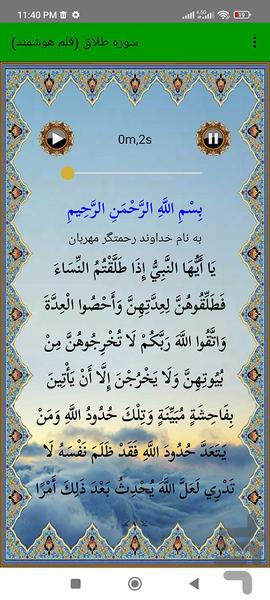 11:40 PM
4.5G
19
سوره طلاق (قلم هوشمند)
0m,2s
بِسْمِ اللَّهِ الرَّحْمَنِ الرَّحِيمِ
به نام خداوند رحمتگر مهربان
يَا أَيُّهَا النَّبِيُّ إِذَا طَلَّقْتُمُ النِّسَاءَ
فَطَلِّقُوهُنَّ لِعِدَّتِهِنَّ وَأَحْصُوا الْعِدَّةَ
وَاتَّقُوا اللَّهَ رَبَّكُمْ لَا تُخْرِجُوهُنَّ مِنْ
بُيُوتِهِنَّ وَلَا يَخْرُجْنَ إِلَّا أَنْ يَأْتِينَ
بِفَاحِشَةٍ مُبَيِّنَةٍ وَتِلْكَ حُدُودُ اللَّهِ وَمَنْ
يَتَعَدَّ حُدُودَ اللَّهِ فَقَدْ ظَلَمَ نَفْسَهُ لَا
تَدْرِي لَعَلَّ اللَّهَ يُحْدِثُ بَعْدَ ذَلِكَ أَمْرًا